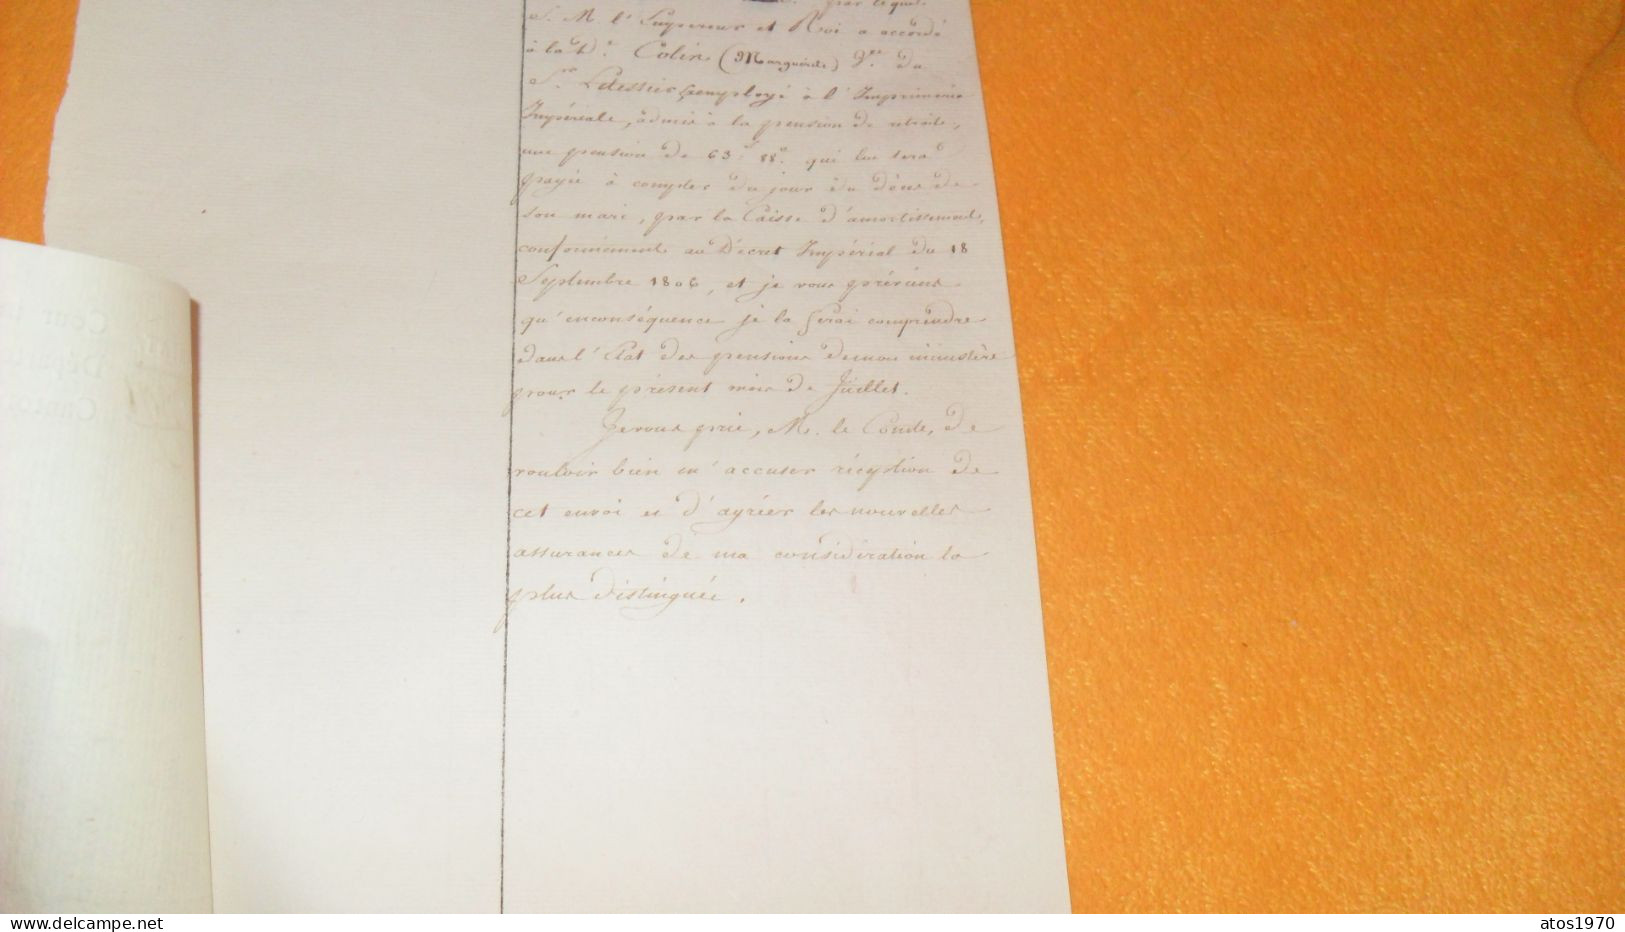 par lequel
S. M. l'Empereur et Roi a accordé
à la De. Colin (Marguerite) Ve. du
Sr. employé à l'Imprimerie
Impériale, admis à la pension de retraite,
une pension de 63f 88c. qui lui sera
payée à compter du jour du décès de
son mari, par la Caisse d'amortissement,
conformément au Décret Impérial du 18
Septembre 1806, et je vous préviens
qu'enconséquence je la ferai comprendre
dans l'Etat des pensions de mon ministère
pour le présent mois de Juillet.
Je vous prie, M. le Comte, de
vouloir bien m'accuser réception de
cet envoi et d'agréer les nouvelles
assurances de ma considération la
plus distinguée.
Cour
Départ
Canto
atos1970